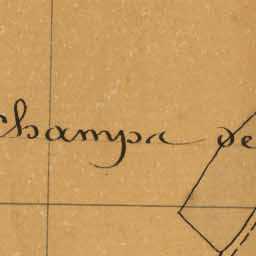 Champs de